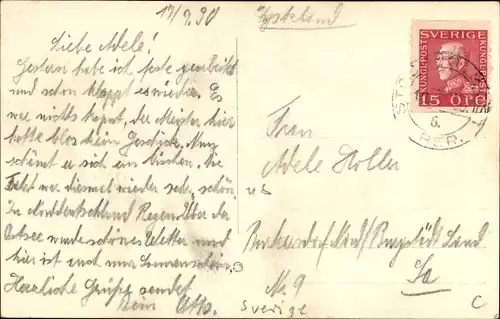 17/9.30
Tyskland
Liebe Adele!
Gestern habe ich feste gearbeitet
und schon klappt es wieder. Es
war nichts kaput, der Meister hier
hatte blos kein Geschick. Nun
schämt er sich ein bischen. Die
Fahrt war diesmal wieder sehr schön.
In Norddeutschland Regen. Über der
Ostsee wunderschönes Wetter und
hier ist auch nur Sonnenschein.
Herzliche Grüße sendet
Dein Otto.
SVERIGE
KUNGL. POST
15 ÖRE
6.
PER.
Frau
Adele Holler
Burgstädt Land
Sa
No. 9
Sverige
C